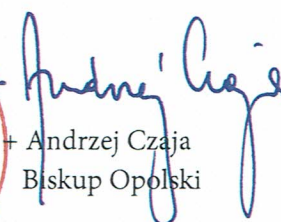 Andrzej Czaja
+ Andrzej Czaja
Biskup Opolski